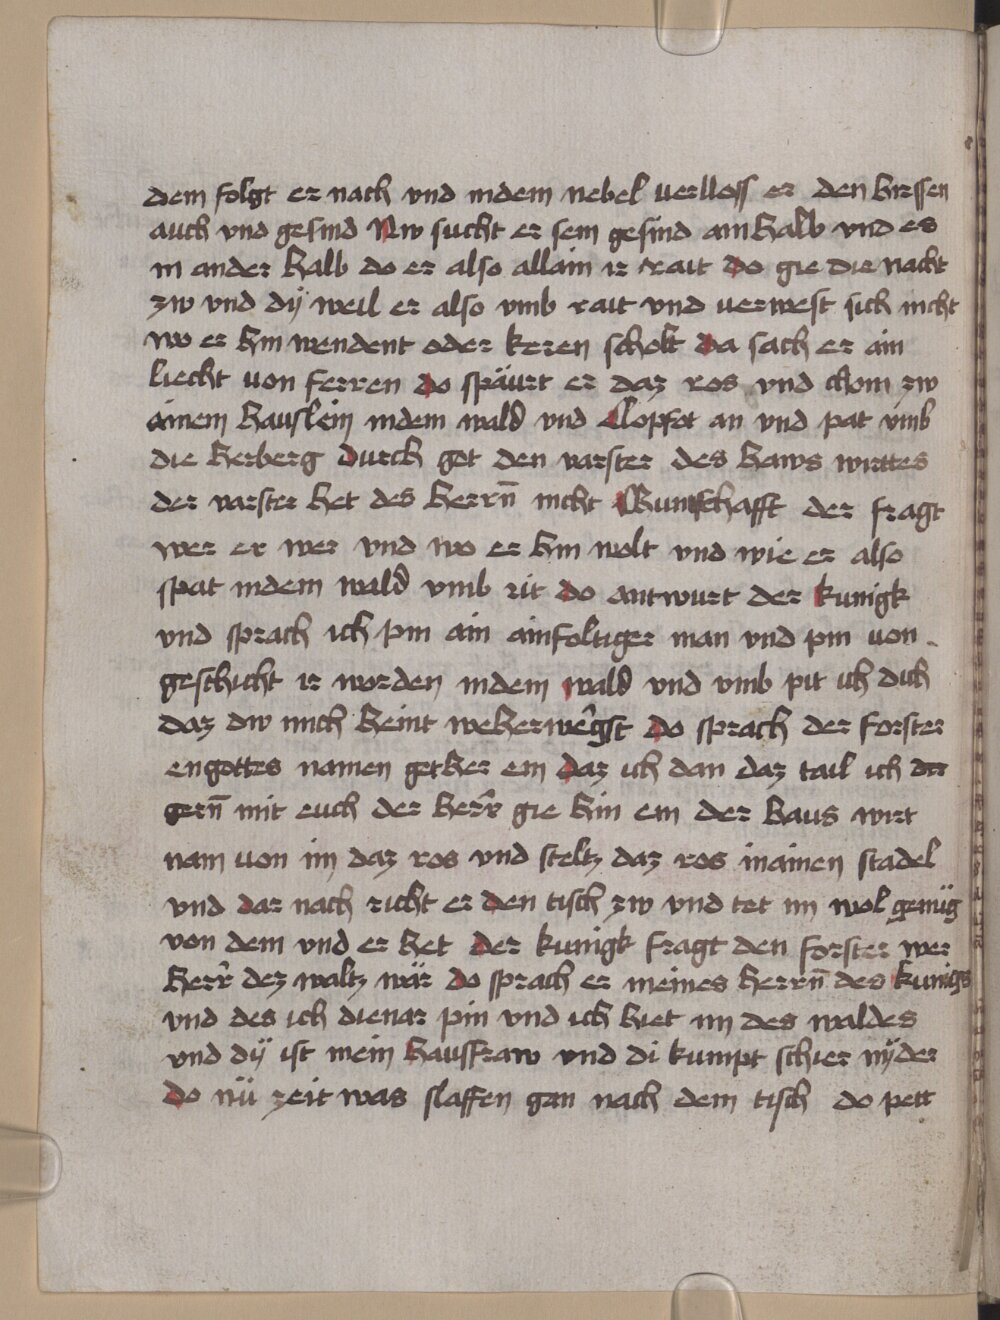 dem folgt er nach vnd indem nebel verlloss er den hirssen
auch vnd gesind Nw sucht er sein gesind ainhalb vnd es
in ander halb do er also allain ir rait do gie die nacht
zw vnd dÿ weil er also vmb rait vnd verwest sich nicht
wo er hin wendent oder keren scholt da sach er ain
liecht von ferren do späurt er daz ros vnd chom zw
ainem hauslein indem wald vnd clopfet an vnd pat vmb
die herberg durch got den varster des haws wirttes
der varster het des herrn̄ nicht kuntschafft der fragt
wer er wer vnd wo er hin wolt vnd wie er also
spat indem wald vmb rit do antwurt der kunigk
vnd sprach ich pin ain ainfoltiger man vnd pin von
geschicht ir worden indem wald vnd vmb pit ich dich
daz dw mich heint weherwergst do sprach der forster
engottes namen get her ein daz ich han daz tail ich
gern̄ mit euch der herr gie hin ein der haus wirt
nam von im daz ros vnd steltz daz ros inainen stadel
vnd dar nach richt er den tisch zw vnd tet im wol genüg
von dem vnd er het der kunigk fragt den forster wer
herr dez waltz wär do sprach er meines herrn̄ des kunigs
vnd des ich dienar pin vnd ich hiet im des waldes
vnd dÿ ist mein hausfraw vnd di kumpt schier nÿder
do nü zeit was slaffen gan nach dem tisch do pett